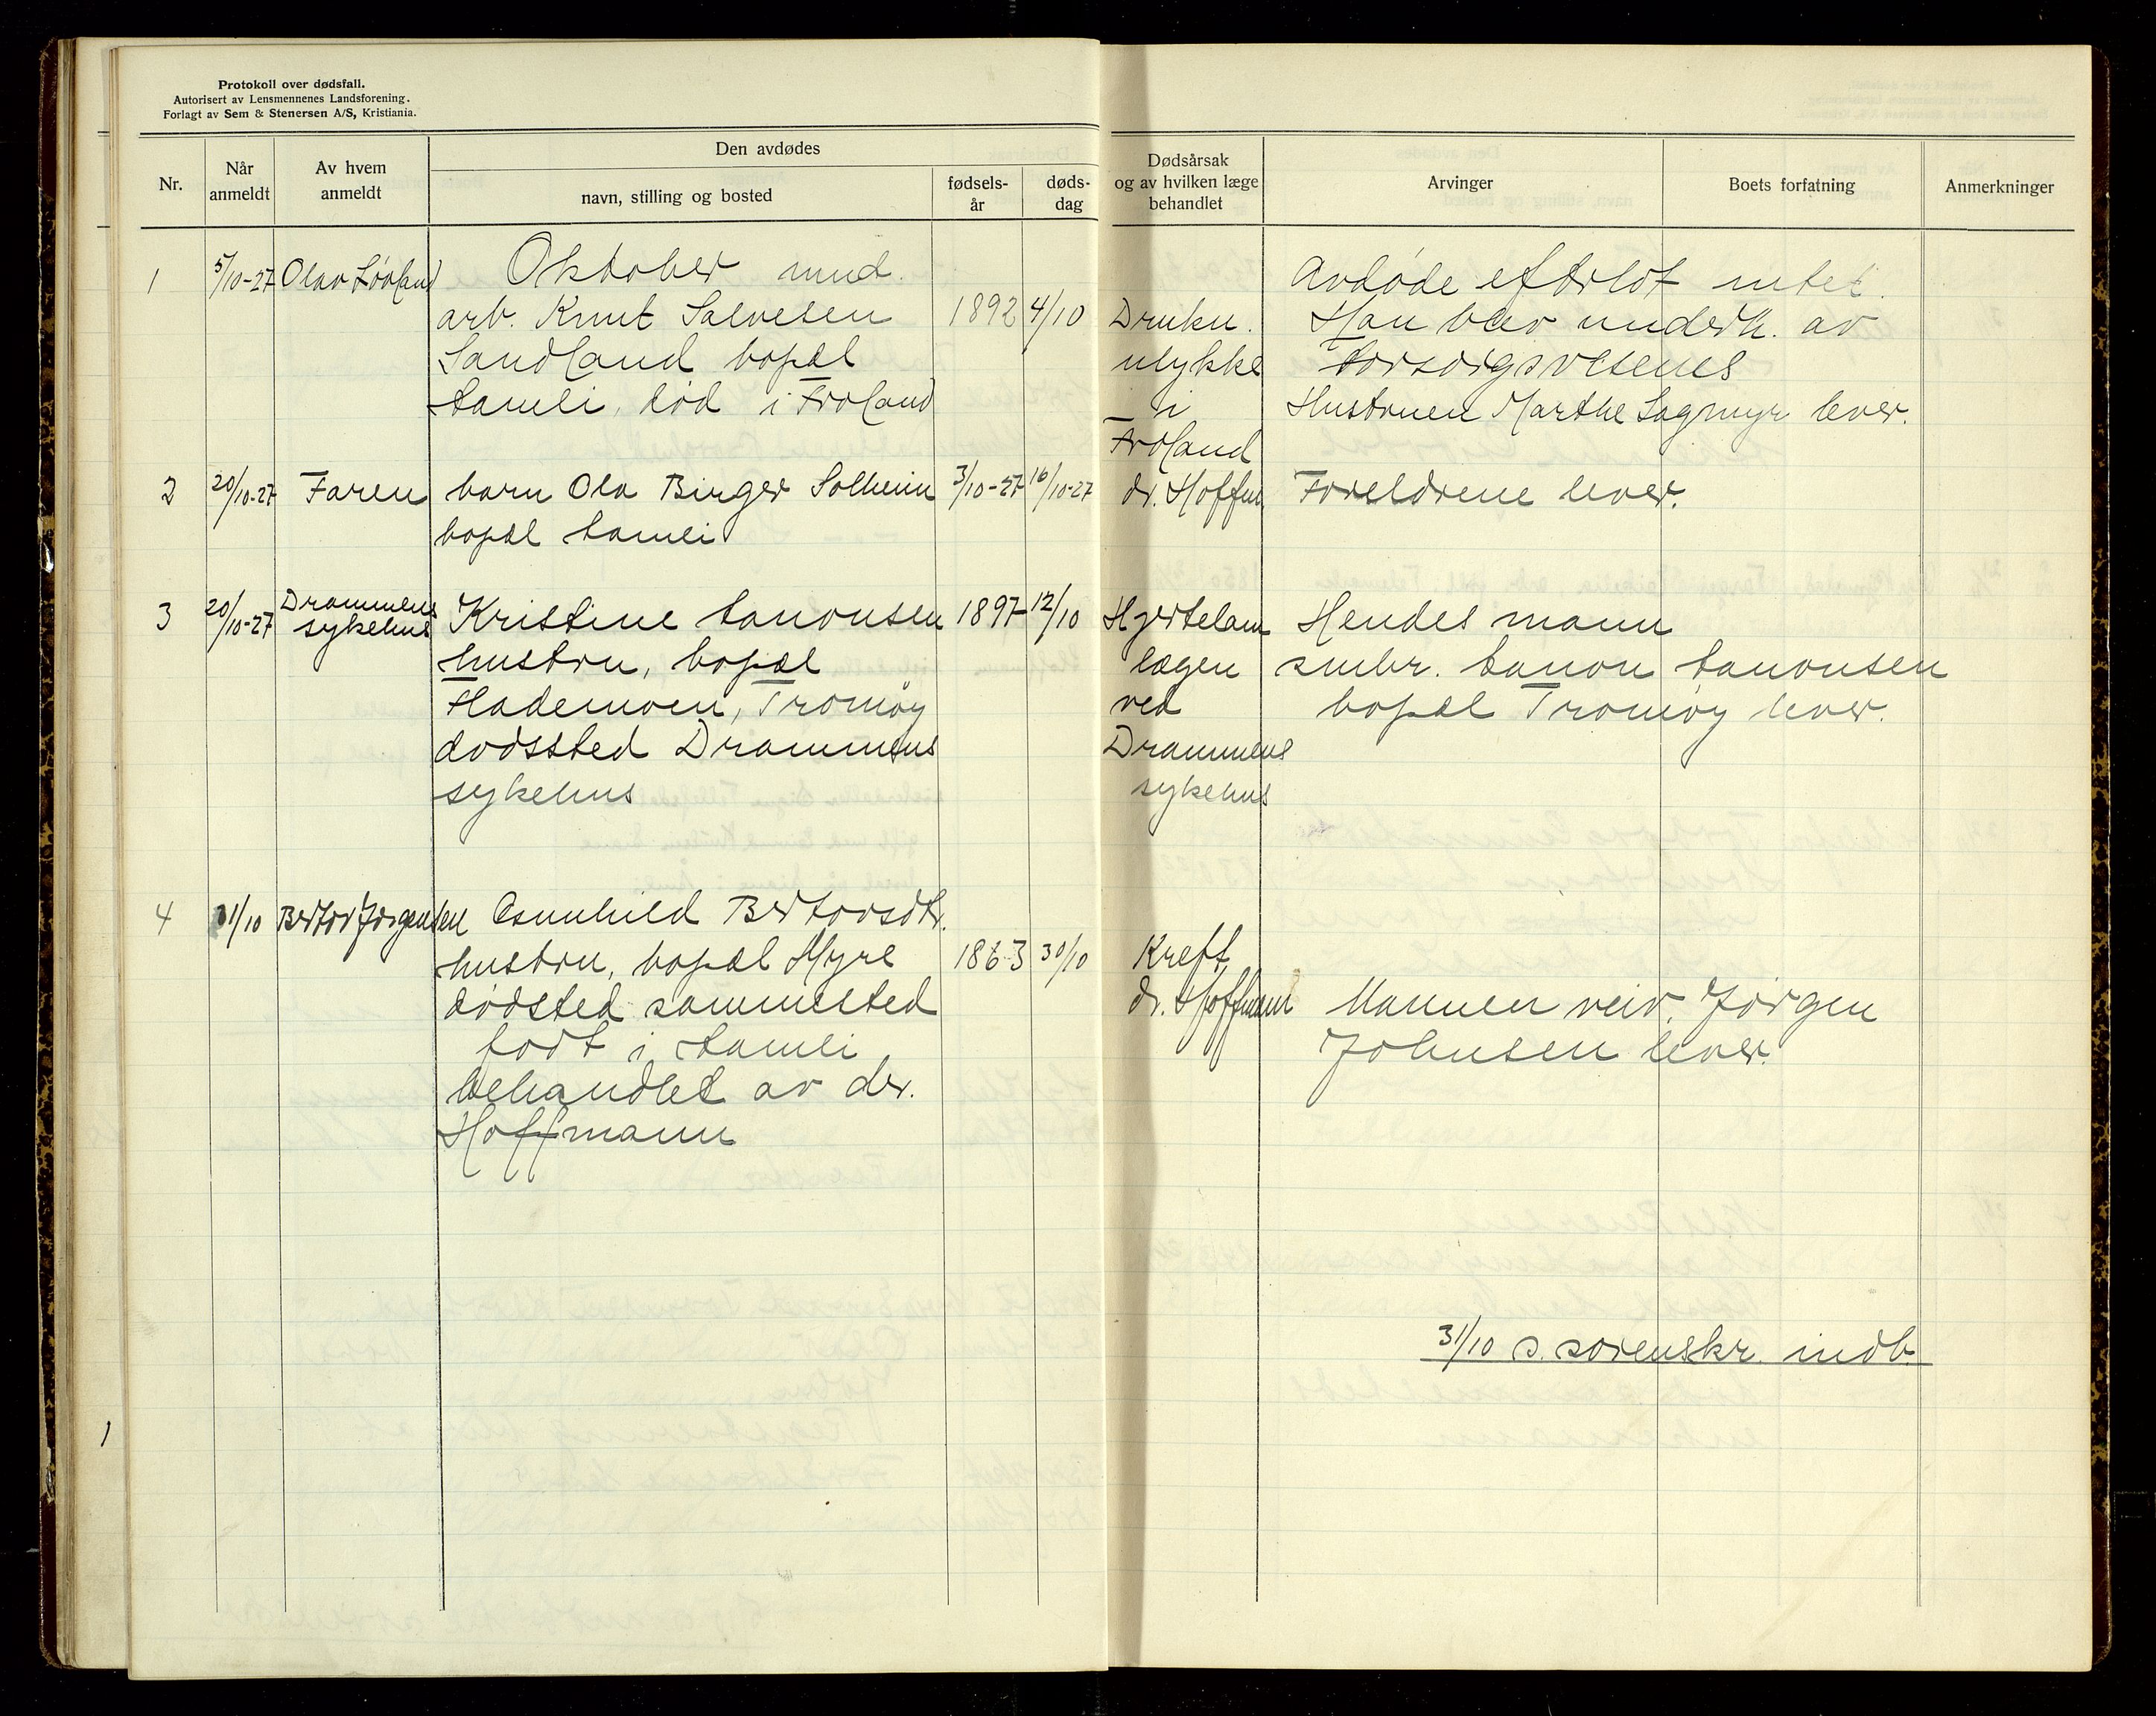 Protokoll over dødsfall.
Autorisert av Lensmennenes Landsforening.
Forlagt av Sem & Stenersen A/S, Kristiania.
Nr.
Når anmeldt
Av hvem anmeldt
Den avdødes
navn, stilling og bosted
fødsels-år
døds-dag
Dødsårsak og av hvilken læge behandlet
Arvinger
Boets forfatning
Anmerkninger
1
5/10-27
Olav Løvland
Oktober mnd.
arb. Knut Salvesen
Sandland bopæl
Åmli, død i Froland
1892
4/10
Drukn.
ulykke
i
Froland
Avdøde efterlot intet.
Han blev underh. av
forsorgsvesenet
Hustruen Marthe Sagmyr lever.
2
20/10-27
Faren
barn Ola Birger Solheim
bopæl Åmli
3/10-27
16/10-27
dr. Hoffm
Foreldrene lever.
3
20/10-27
Drammens
sykehus
Kristine Aanonsen
hustru, bopæl
Flademoen, Tromøy
dødssted Drammens
sykehus
1897
12/10
Hjertelam
lægen
ved
Drammens
sykehus
Hendes mann
småbr. Aanon Aanonsen
bopæl Tromøy lever.
4
31/10
Bertor Jørgensen
Åsmhild Bertorsdtr.
hustru, bopæl Myre
dødsted sammested
født i Åmli
behandlet av dr.
Hoffmann
1863
30/10
Kreft
dr. Hoffmann
Mannen veiv. Jørgen
Johnsen lever.
31/10 s. sorenskr. indb.
1